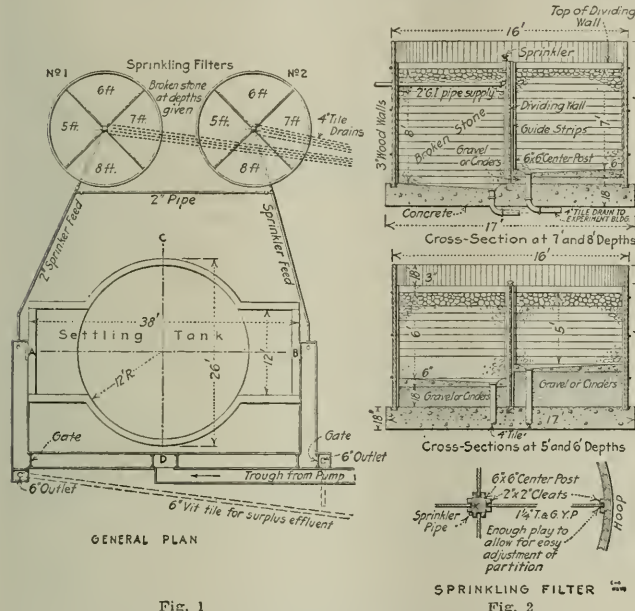 Sprinkling Filters
Nº1
Nº2
Broken stone
at depths
given
6 ft
5 ft.
7 ft
8 ft.
6 ft
5 ft.
7 ft
8 ft
4" Tile
Drains
2" Pipe
2" Sprinkler Feed
Sprinkler Feed
C
38'
Settling Tank
A
B
12'R.
26'
12'
Gate
D
Gate
6" Outlet
6" Outlet
Trough from Pump
6" Vit tile for surplus effluent
GENERAL PLAN
Fig. 1
Top of Dividing
Wall
16'
Sprinkler
2" G.I pipe supply
Dividing Wall
3" Wood Walls
8'
Broken Stone
Guide Strips
7'
Gravel
or Cinders
6x6" Center Post
6"
18"
Concrete
4" TILE DRAIN TO
EXPERIMENT BLDG.
17'
Cross-Section at 7' and 8' Depths
16'
3"
18"
6'
5'
6"
Gravel or Cinders
Gravel or Cinders
18"
18"
17
4" Tile
Cross-Sections at 5' and 6' Depths
6"x 6" Center Post
2"x 2" Cleats
1¼" T.& G. Y.P
Sprinkler
Pipe
Enough play to
allow for easy
adjustment of
partition
HOOP
SPRINKLING FILTER
Fig. 2